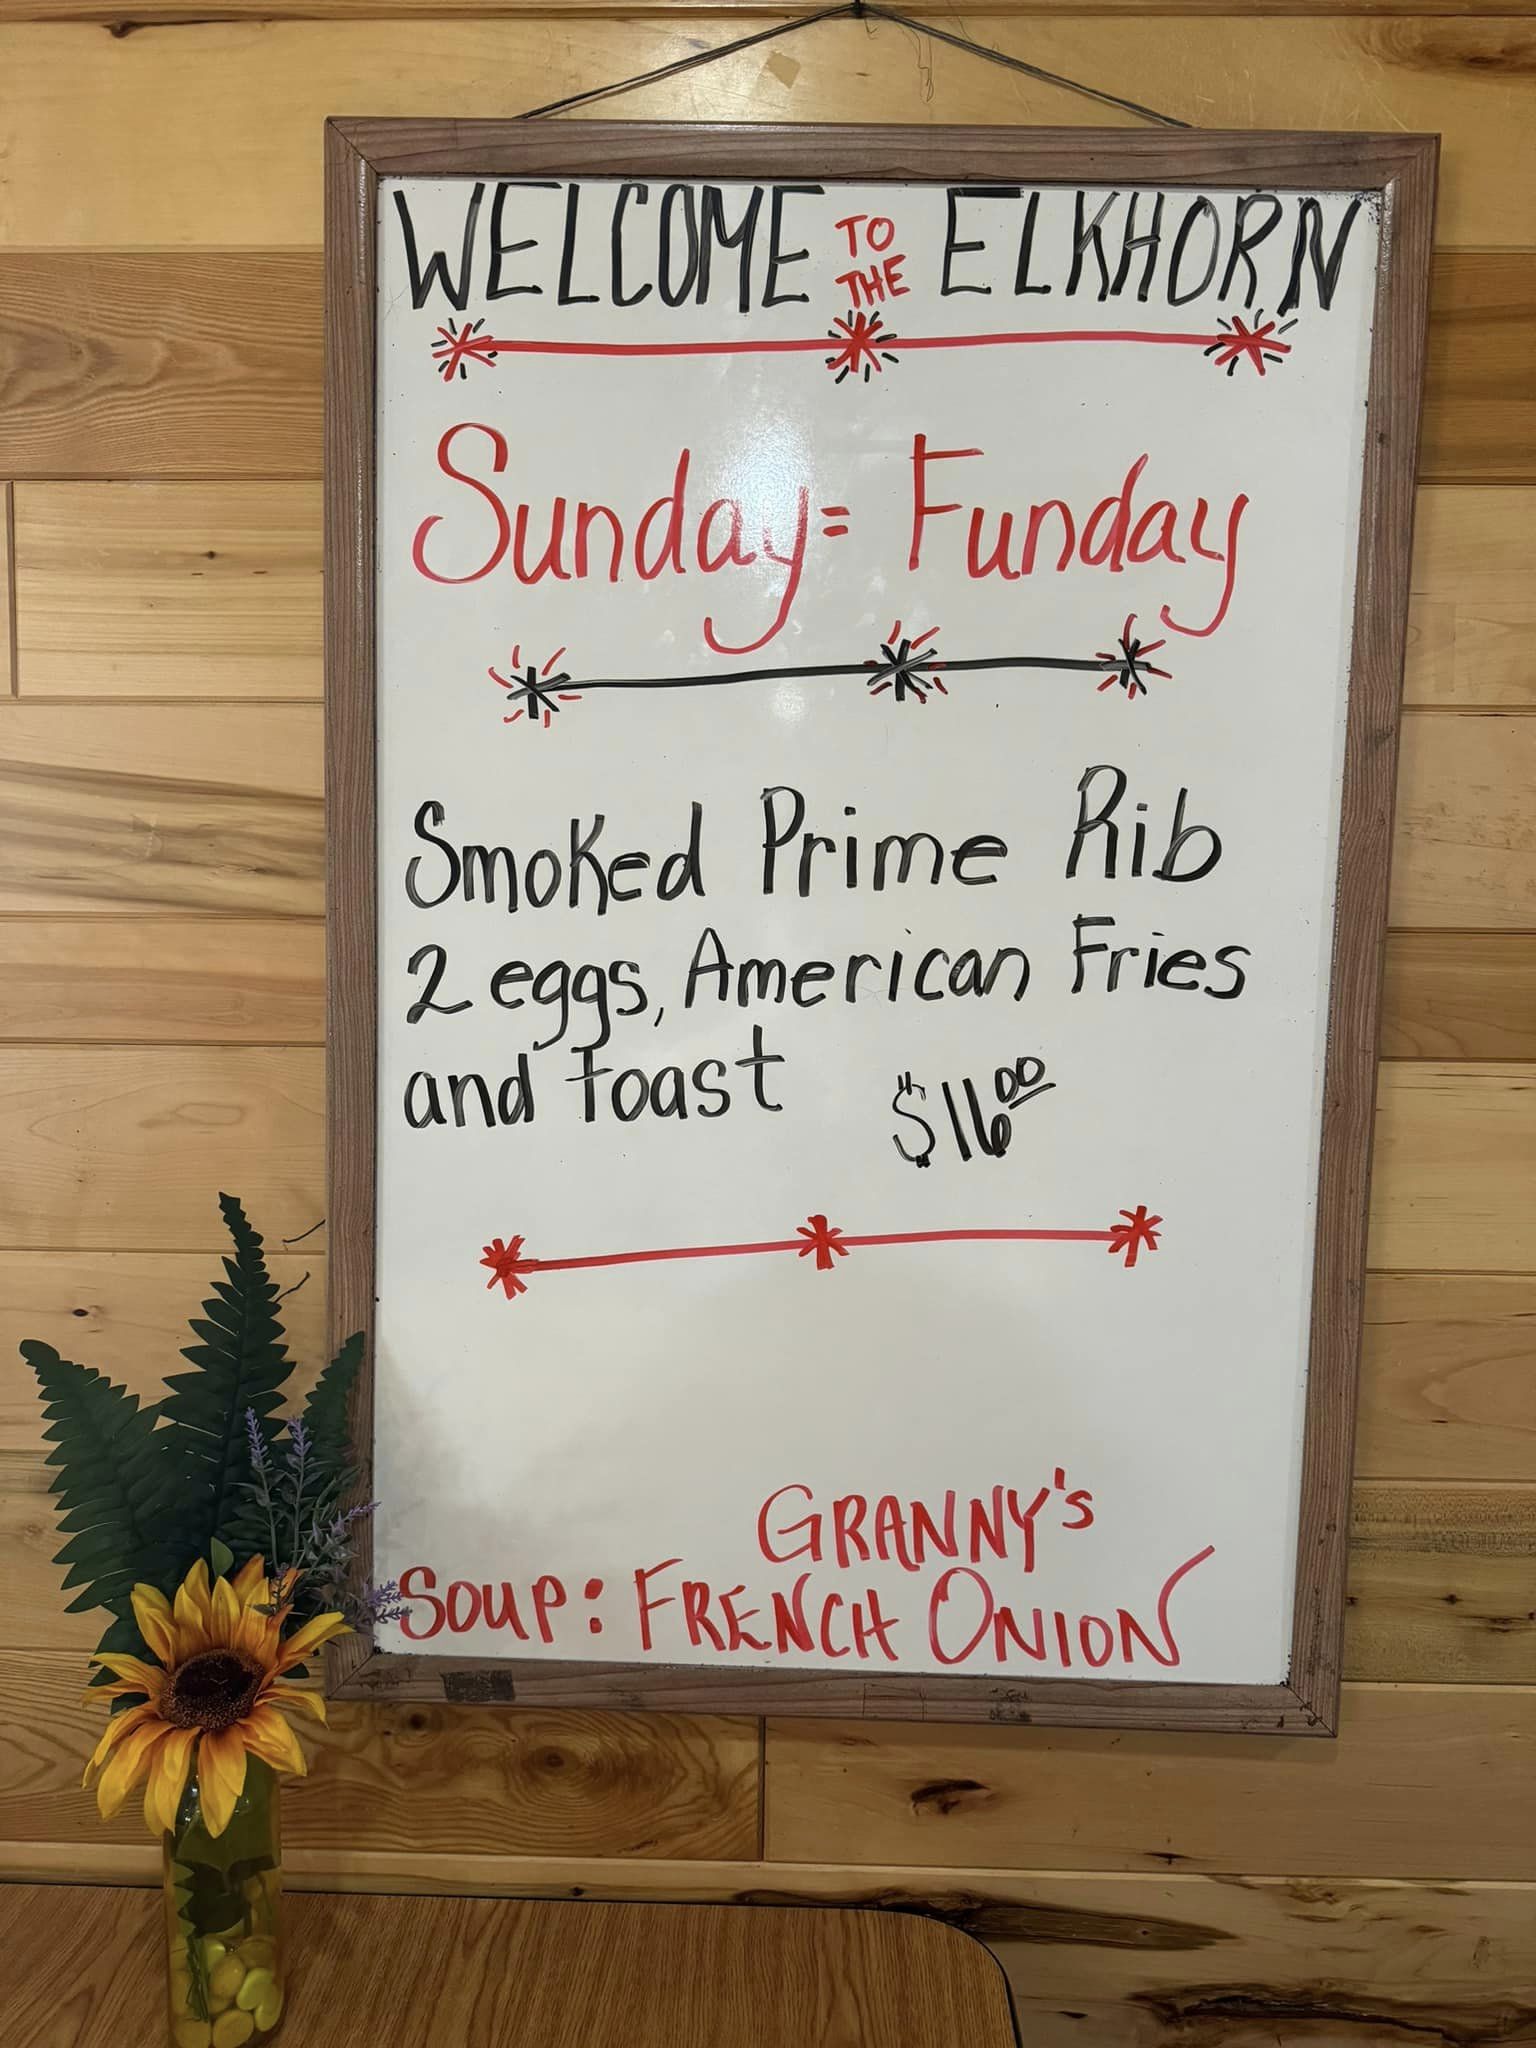 WELCOME TO THE ELKHORN
Sunday = Funday
Smoked Prime Rib
2 eggs, American Fries
and toast $16.00
GRANNY's
SOUP: FRENCH ONION